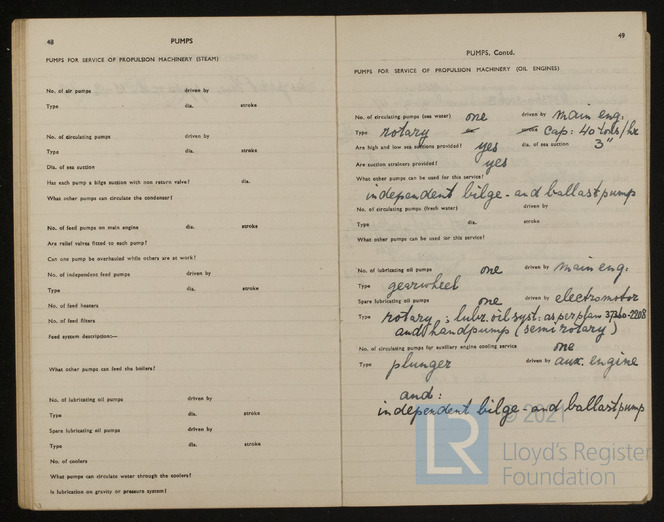 48
PUMPS
PUMPS FOR SERVICE OF PROPULSION MACHINERY (STEAM)
No. of air pumps driven by
Type dia. stroke
No. of circulating pumps driven by
Type dia. stroke
Dia. of sea suction
Has each pump a bilge suction with non return valve? dia.
What other pumps can circulate the condenser?
No. of feed pumps on main engine dia. stroke
Are relief valves fitted to each pump?
Can one pump be overhauled while others are at work?
No. of independent feed pumps driven by
Type dia. stroke
No. of feed heaters
No. of feed filters
Feed system description:—
What other pumps can feed the boilers?
No. of lubricating oil pumps driven by
Type dia. stroke
Spare lubricating oil pumps driven by
Type dia. stroke
No. of coolers
What pumps can circulate water through the coolers?
Is lubrication on gravity or pressure system?
49
PUMPS, Contd.
PUMPS FOR SERVICE OF PROPULSION MACHINERY (OIL ENGINES)
No. of circulating pumps (sea water) one driven by main eng:
Type rotary dia. stroke cap: 40 tons/hr
Are high and low sea suctions provided? yes dia. of sea suction 3"
Are suction strainers provided? yes
What other pumps can be used for this service?
independent bilge - and ballastpump
No. of circulating pumps (fresh water) driven by
Type dia. stroke
What other pumps can be used for this service?
No. of lubricating oil pumps one driven by main eng:
Type gearwheel
Spare lubricating oil pumps one driven by electromotor
Type rotary ; lubr. oil syst: as per plan
and handpump (semi rotary)
No. of circulating pumps for auxiliary engine cooling service one
Type plunger driven by aux. engine
and:
independent bilge - and ballastpump
LR
© 2021
Lloyd's Register
Foundation